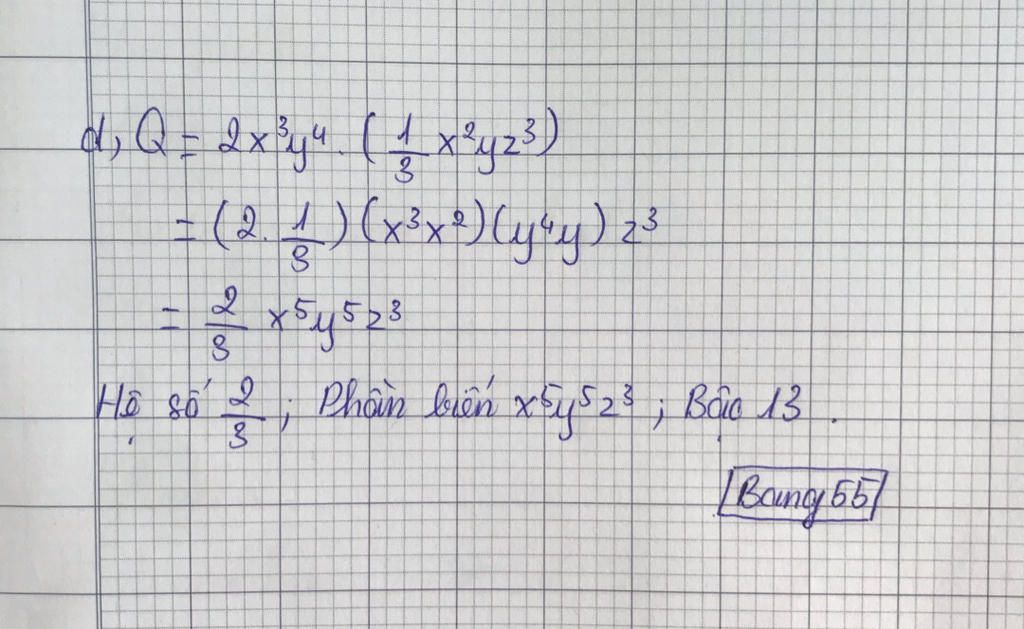 d, Q = 2x³y⁴. (1/3 x²yz³)
= (2. 1/3) (x³x²)(y⁴y) z³
= 2/3 x⁵y⁵z³
Hệ số 2/3 ; Phần biến x⁵y⁵z³ ; Bậc 13 .
Bang 55